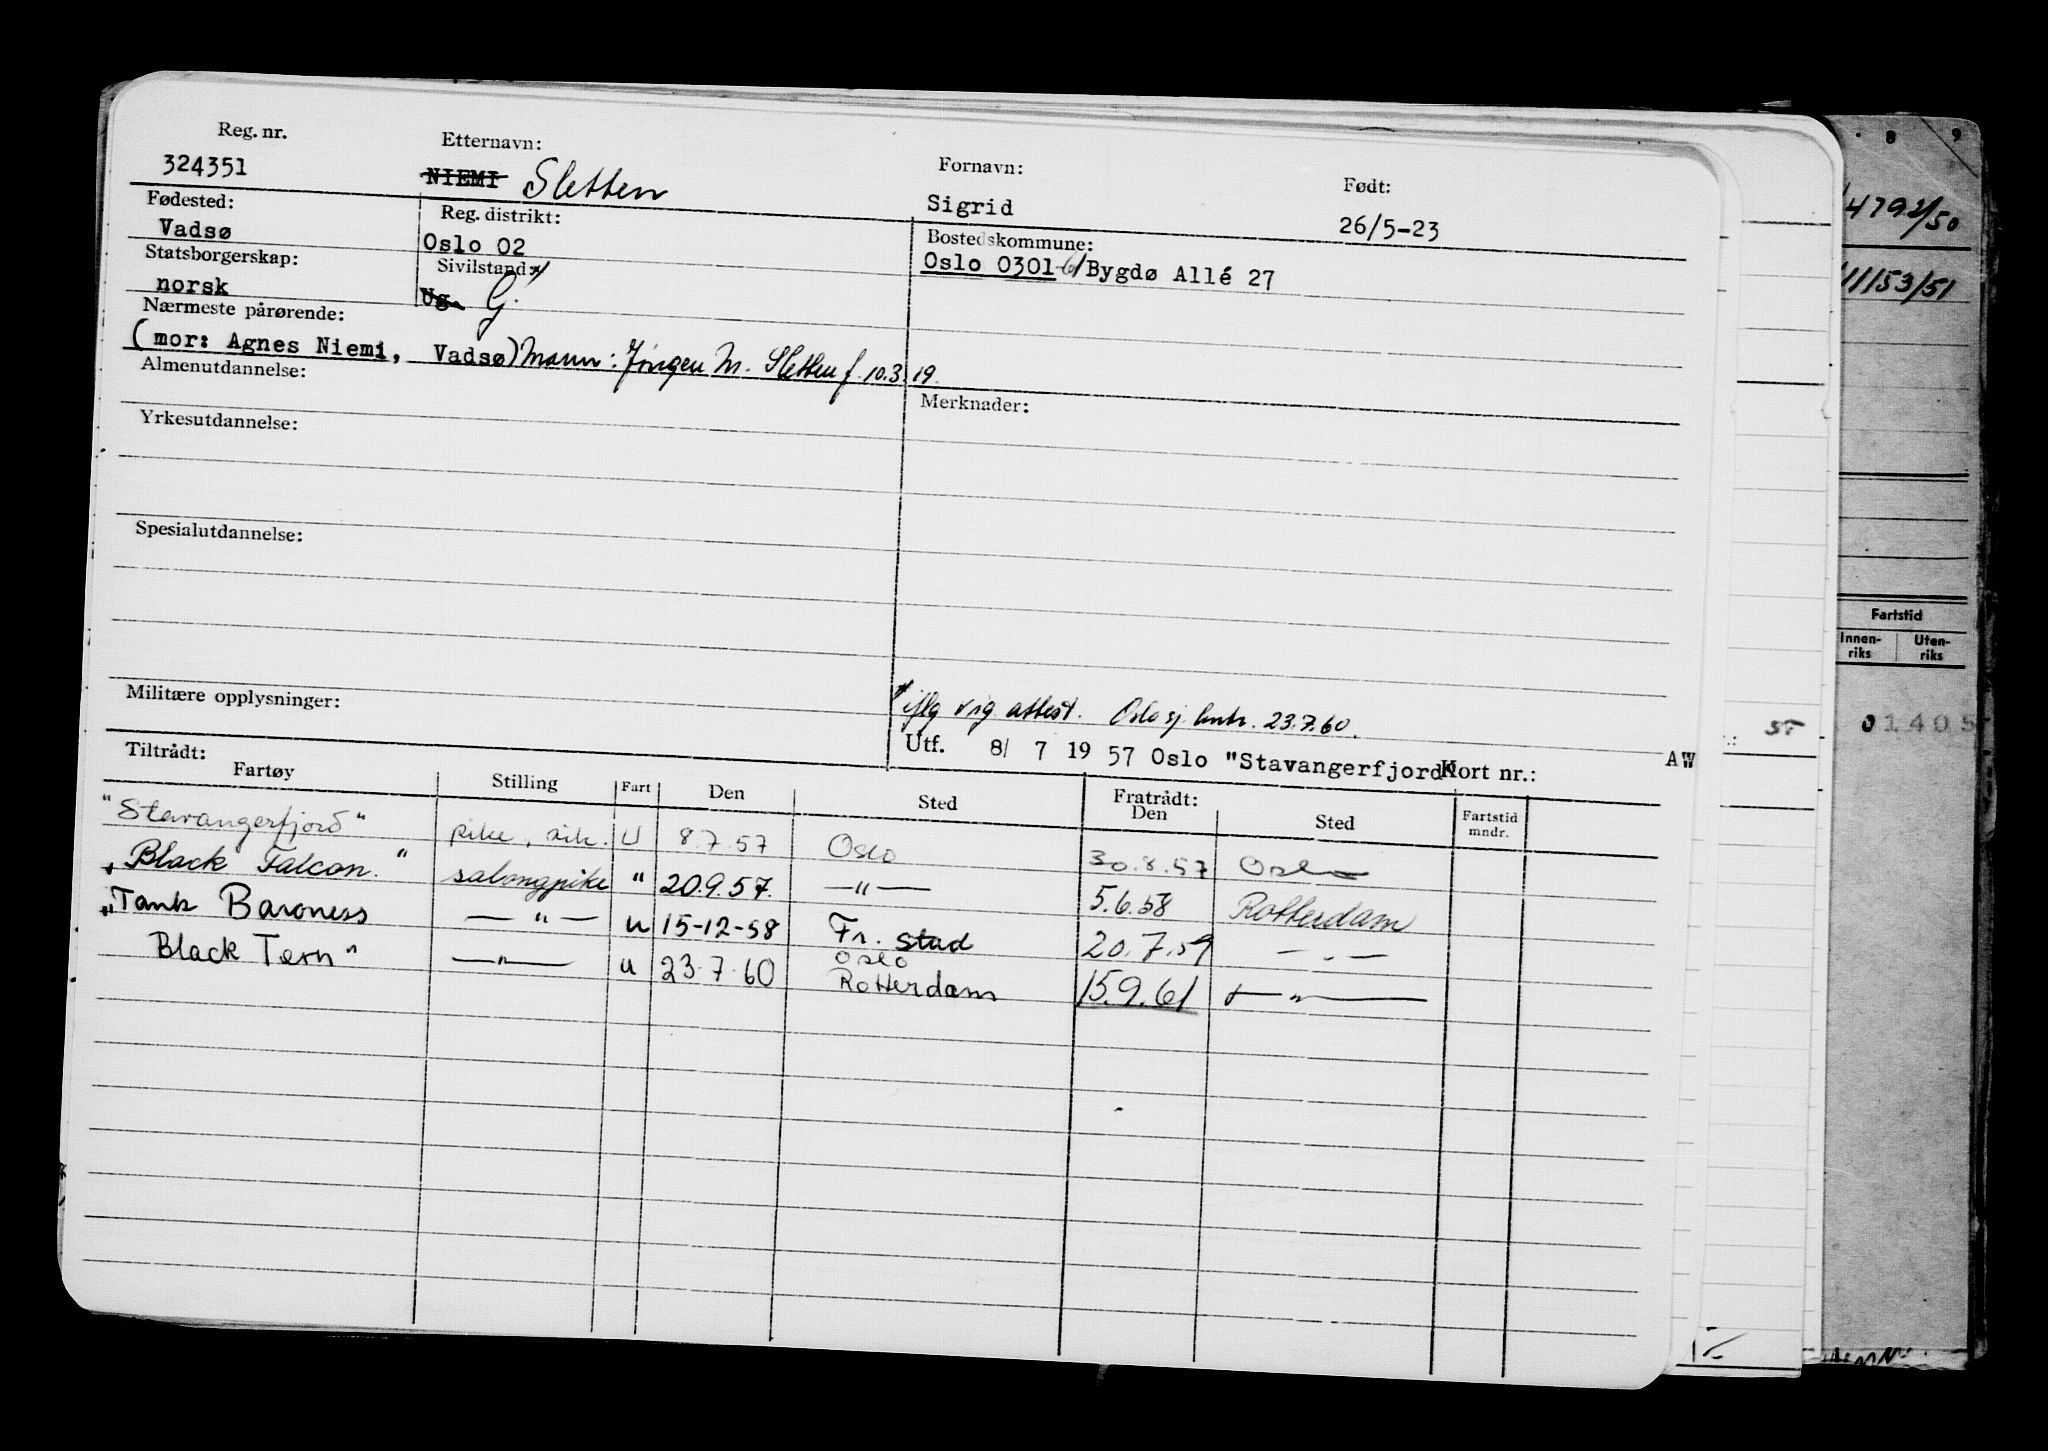 Reg. nr. Etternavn: Fornavn: Født:
324351 NIEMI Sletten Sigrid 26/5-23
Fødested: Reg. distrikt: Bostedskommune:
Vadsø Oslo 02 Oslo 0301-61 Bygdø Allé 27
Statsborgerskap: Sivilstand x/
norsk Ug. G.
Nærmeste pårørende:
(mor: Agnes Niemi, Vadsø) Mann: Jörgen M. Sletten f. 10.3.19.
Almenutdannelse: Merknader:
Yrkesutdannelse:
Spesialutdannelse:
Militære opplysninger: x/ iflg vig. attest. Oslo sj. kontr. 23.7.60.
Utf. 8/ 7 19 57 Oslo "Stavangerfjord" Kort nr.: AW
Tiltrådt: Fratrådt:
Fartøy Stilling Fart Den Sted Den Sted Fartstid mndr.
"Stavangerfjord" pike, sik. U 8.7.57 Oslo 30.8.57 Oslo
"Black Falcon." salongpike " 20.9.57. —"— 5.6.58 Rotterdam
"Tank Baroness —"— u 15-12-58 Fr. stad 20.7.59 —"—
Black Tern" —"— u 23.7.60 Oslo Rotterdam 15.9.61 —"—
8 9
4792/50
11153/51
Fartstid
Innen-riks Uten-riks
55 01405